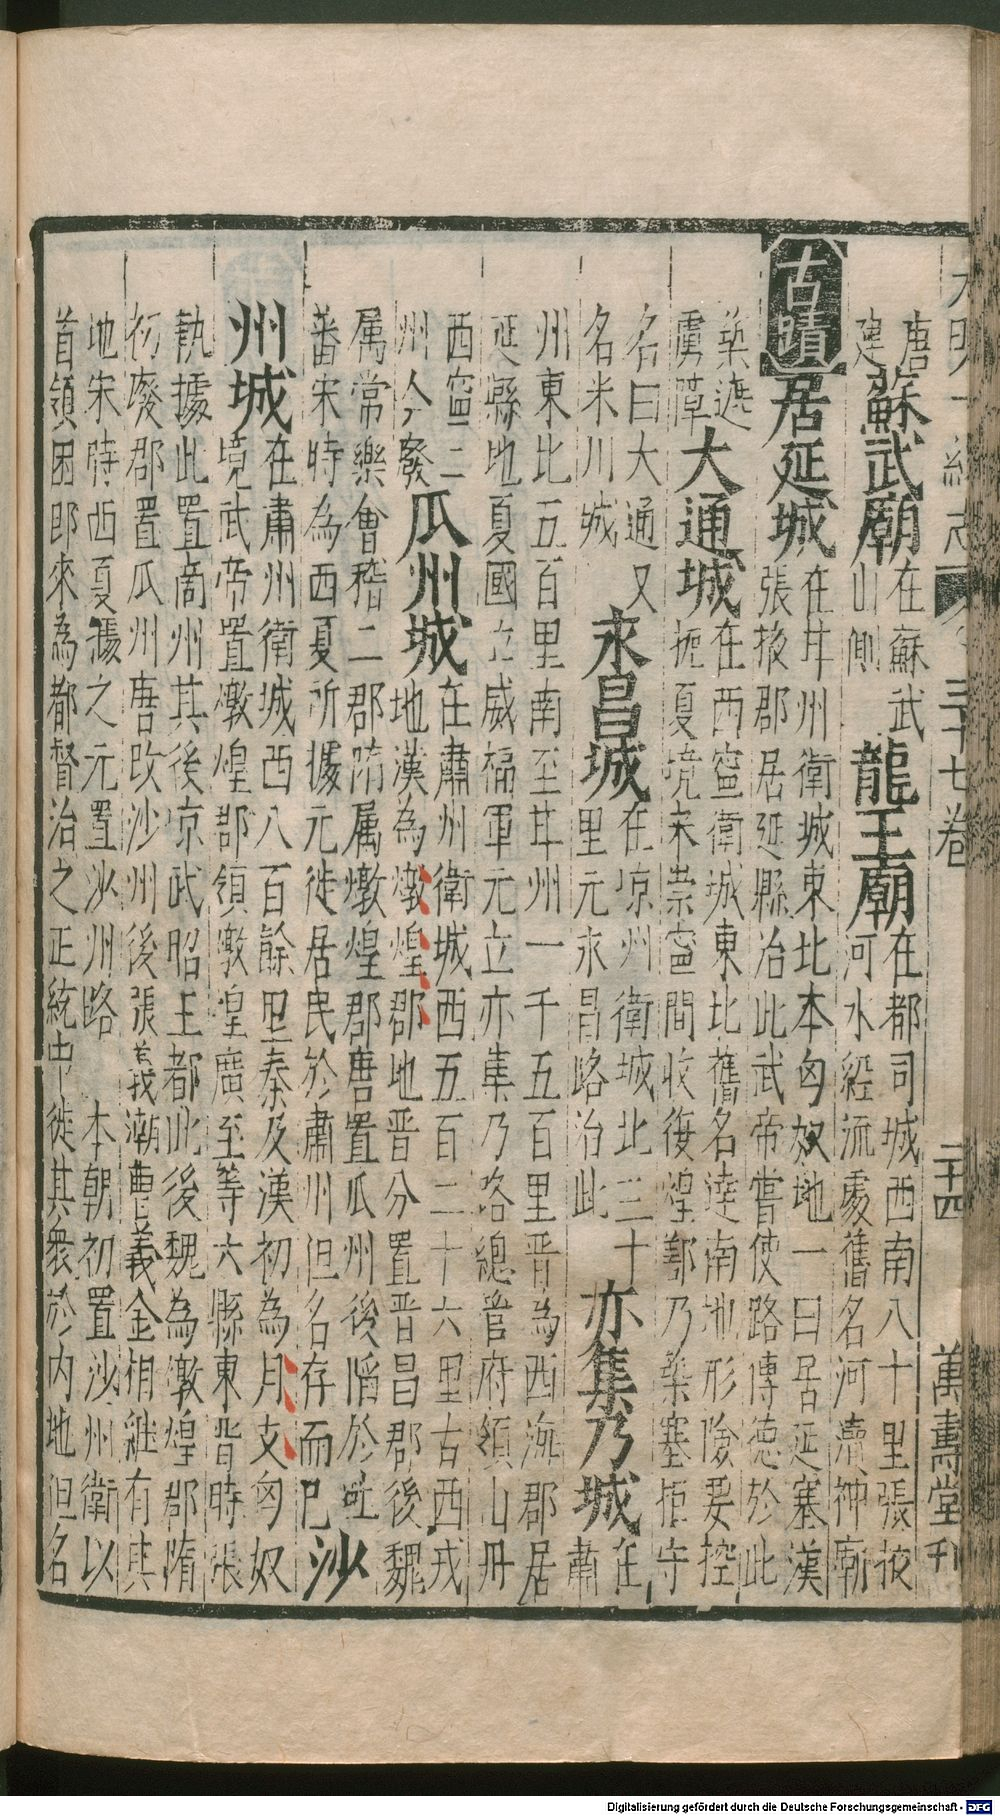 大明一統志 三十七卷 二十四 萬壽堂刊
唐
建
蘇武廟
在蘇武
山側
龍王廟
在都司城西南八十里張掖
河水經流處舊名河瀆神廟
古蹟
居延城
在甘州衛城東北本匈奴地一曰居延塞漢
張掖郡居延縣治此武帝嘗使路博德於此
築遮
虜障
大通城
在西寧衛城東北舊名逵南地形險要控
扼夏境宋崇寧間收復煌鄯乃築塞拒守
名曰大通又
名米川城
永昌城
在凉州衛城北三十
里元永昌路治此
亦集乃城
在
肅
州東北五百里南至甘州一千五百里晋為西海郡居
延縣地夏國立威福軍元立亦集乃路總管府領山丹
西寧二
州今廢
瓜州城
在肅州衛城西五百二十六里古西戎
地漢為燉煌郡地晋分置晋昌郡後魏
属常樂會稽二郡隋属燉煌郡唐置瓜州後陷於吐
蕃宋時為西夏所據元徙居民於肅州但名存而已
沙
州城
在肅州衛城西八百餘里秦及漢初為月支匈奴
境武帝置燉煌郡領燉煌廣至等六縣東晋時張
執據此置商州其後凉武昭王都此後魏為燉煌郡隋
初廢郡置瓜州唐改沙州後張義潮曹義金相継有其
地宋時西夏據之元置沙州路 本朝初置沙州衛以
首領困即來為都督治之正統中徙其衆於内地但名
Digitalisierung gefördert durch die Deutsche Forschungsgemeinschaft - DFG